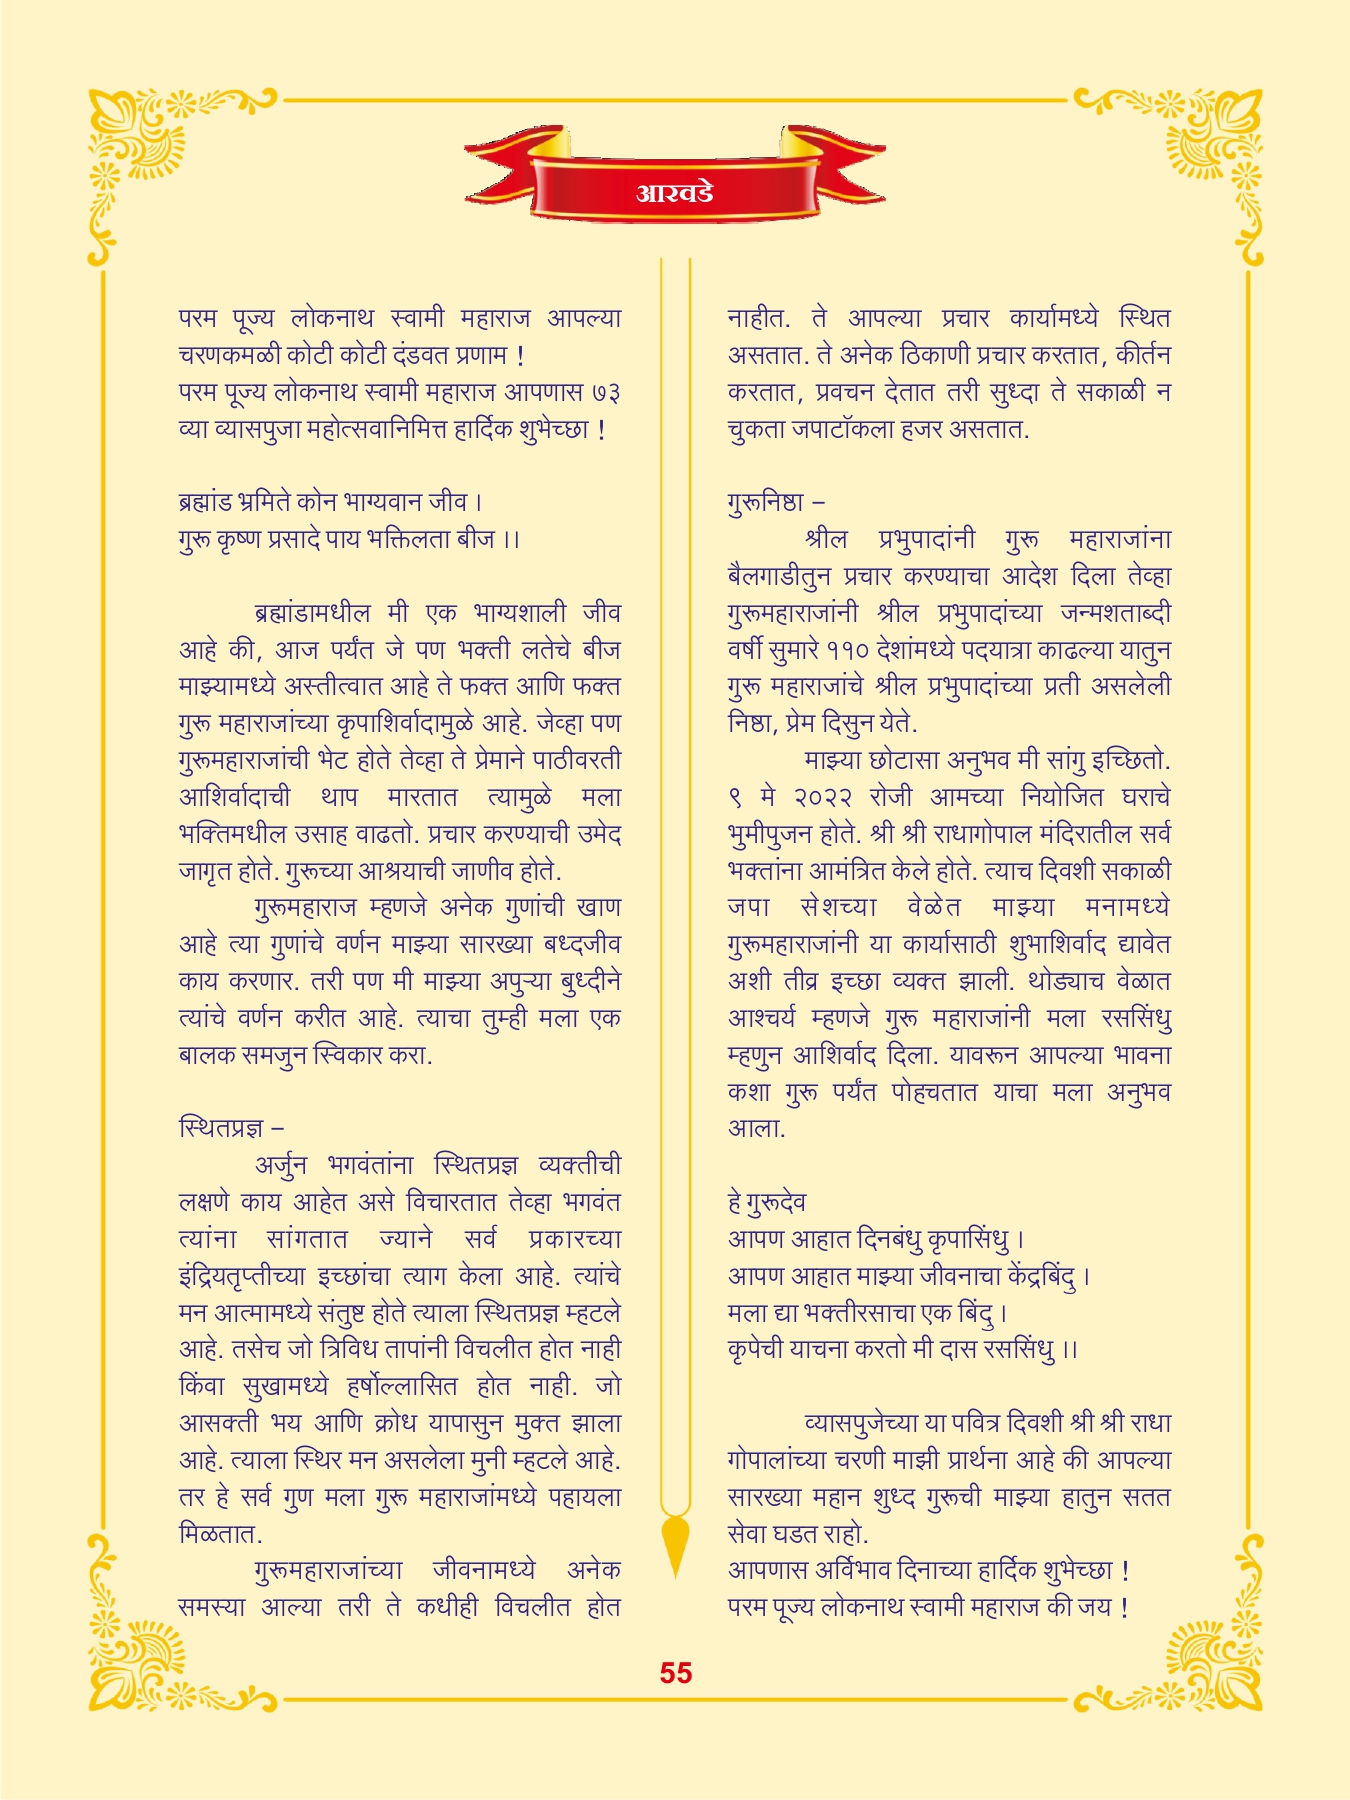 आरवडे
परम पूज्य लोकनाथ स्वामी महाराज आपल्या
चरणकमळी कोटी कोटी दंडवत प्रणाम !
परम पूज्य लोकनाथ स्वामी महाराज आपणास ७३
व्या व्यासपुजा महोत्सवानिमित्त हार्दिक शुभेच्छा !
ब्रह्मांड भ्रमिते कोन भाग्यवान जीव ।
गुरू कृष्ण प्रसादे पाय भक्तिलता बीज ।।
ब्रह्मांडामधील मी एक भाग्यशाली जीव
आहे की, आज पर्यंत जे पण भक्ती लतेचे बीज
माझ्यामध्ये अस्तीत्वात आहे ते फक्त आणि फक्त
गुरू महाराजांच्या कृपाशिर्वादामुळे आहे. जेव्हा पण
गुरूमहाराजांची भेट होते तेव्हा ते प्रेमाने पाठीवरती
आशिर्वादाची थाप मारतात त्यामुळे मला
भक्तिमधील उसाह वाढतो. प्रचार करण्याची उमेद
जागृत होते. गुरूच्या आश्रयाची जाणीव होते.
गुरूमहाराज म्हणजे अनेक गुणांची खाण
आहे त्या गुणांचे वर्णन माझ्या सारख्या बध्दजीव
काय करणार. तरी पण मी माझ्या अपुऱ्या बुध्दीने
त्यांचे वर्णन करीत आहे. त्याचा तुम्ही मला एक
बालक समजुन स्विकार करा.
स्थितप्रज्ञ –
अर्जुन भगवंतांना स्थितप्रज्ञ व्यक्तीची
लक्षणे काय आहेत असे विचारतात तेव्हा भगवंत
त्यांना सांगतात ज्याने सर्व प्रकारच्या
इंद्रियतृप्तीच्या इच्छांचा त्याग केला आहे. त्यांचे
मन आत्मामध्ये संतुष्ट होते त्याला स्थितप्रज्ञ म्हटले
आहे. तसेच जो त्रिविध तापांनी विचलीत होत नाही
किंवा सुखामध्ये हर्षोल्लासित होत नाही. जो
आसक्ती भय आणि क्रोध यापासुन मुक्त झाला
आहे. त्याला स्थिर मन असलेला मुनी म्हटले आहे.
तर हे सर्व गुण मला गुरू महाराजांमध्ये पहायला
मिळतात.
गुरूमहाराजांच्या जीवनामध्ये अनेक
समस्या आल्या तरी ते कधीही विचलीत होत
नाहीत. ते आपल्या प्रचार कार्यामध्ये स्थित
असतात. ते अनेक ठिकाणी प्रचार करतात, कीर्तन
करतात, प्रवचन देतात तरी सुध्दा ते सकाळी न
चुकता जपाटॉकला हजर असतात.
गुरूनिष्ठा –
श्रील प्रभुपादांनी गुरू महाराजांना
बैलगाडीतुन प्रचार करण्याचा आदेश दिला तेव्हा
गुरूमहाराजांनी श्रील प्रभुपादांच्या जन्मशताब्दी
वर्षी सुमारे ११० देशांमध्ये पदयात्रा काढल्या यातुन
गुरू महाराजांचे श्रील प्रभुपादांच्या प्रती असलेली
निष्ठा, प्रेम दिसुन येते.
माझ्या छोटासा अनुभव मी सांगु इच्छितो.
९ मे २०२२ रोजी आमच्या नियोजित घराचे
भुमीपुजन होते. श्री श्री राधागोपाल मंदिरातील सर्व
भक्तांना आमंत्रित केले होते. त्याच दिवशी सकाळी
जपा सेशच्या वेळेत माझ्या मनामध्ये
गुरूमहाराजांनी या कार्यासाठी शुभाशिर्वाद द्यावेत
अशी तीव्र इच्छा व्यक्त झाली. थोड्याच वेळात
आश्चर्य म्हणजे गुरू महाराजांनी मला रससिंधु
म्हणुन आशिर्वाद दिला. यावरून आपल्या भावना
कशा गुरू पर्यंत पोहचतात याचा मला अनुभव
आला.
हे गुरूदेव
आपण आहात दिनबंधु कृपासिंधु ।
आपण आहात माझ्या जीवनाचा केंद्रबिंदु ।
मला द्या भक्तीरसाचा एक बिंदु ।
कृपेची याचना करतो मी दास रससिंधु ।।
व्यासपुजेच्या या पवित्र दिवशी श्री श्री राधा
गोपालांच्या चरणी माझी प्रार्थना आहे की आपल्या
सारख्या महान शुध्द गुरूची माझ्या हातुन सतत
सेवा घडत राहो.
आपणास अर्विभाव दिनाच्या हार्दिक शुभेच्छा !
परम पूज्य लोकनाथ स्वामी महाराज की जय !
55